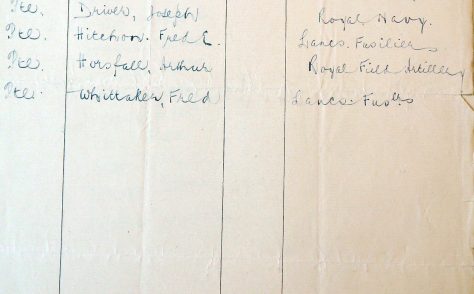 Pte. Driver, Joseph Royal Navy.
Pte. Hitchon. Fred E. Lancs. Fusiliers
Pte. Horsfall, Arthur Royal Field Artillery
Pte. Whittaker, Fred Lancs. Fuslrs